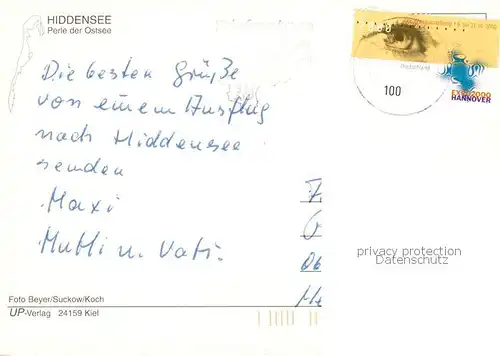 HIDDENSEE
Perle der Ostsee
Die besten Grüße
von einem Ausflug
nach Hiddensee
senden
Maxi
Mutti u. Vati.
Deutschland
100
EXPO2000
HANNOVER
privacy protection
Datenschutz
Foto Beyer/Suckow/Koch
UP-Verlag 24159 Kiel